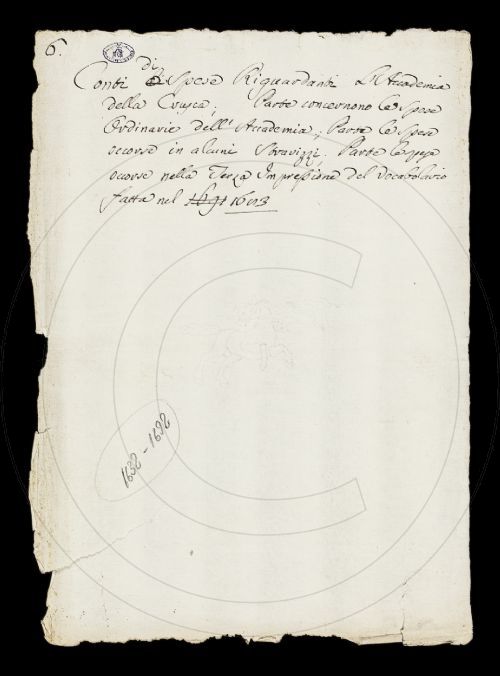 6.
Conti di Spese Riguardanti L'Accademia
della Crusca; Parte concernono le Spese
Ordinarie dell' Accademia; Parte le Spese
occorse in alcuni Stravizzi; Parte le spese
occorse nella Terza Impressione del Vocabolario
fatta nel 1691 1693
1632 - 1692